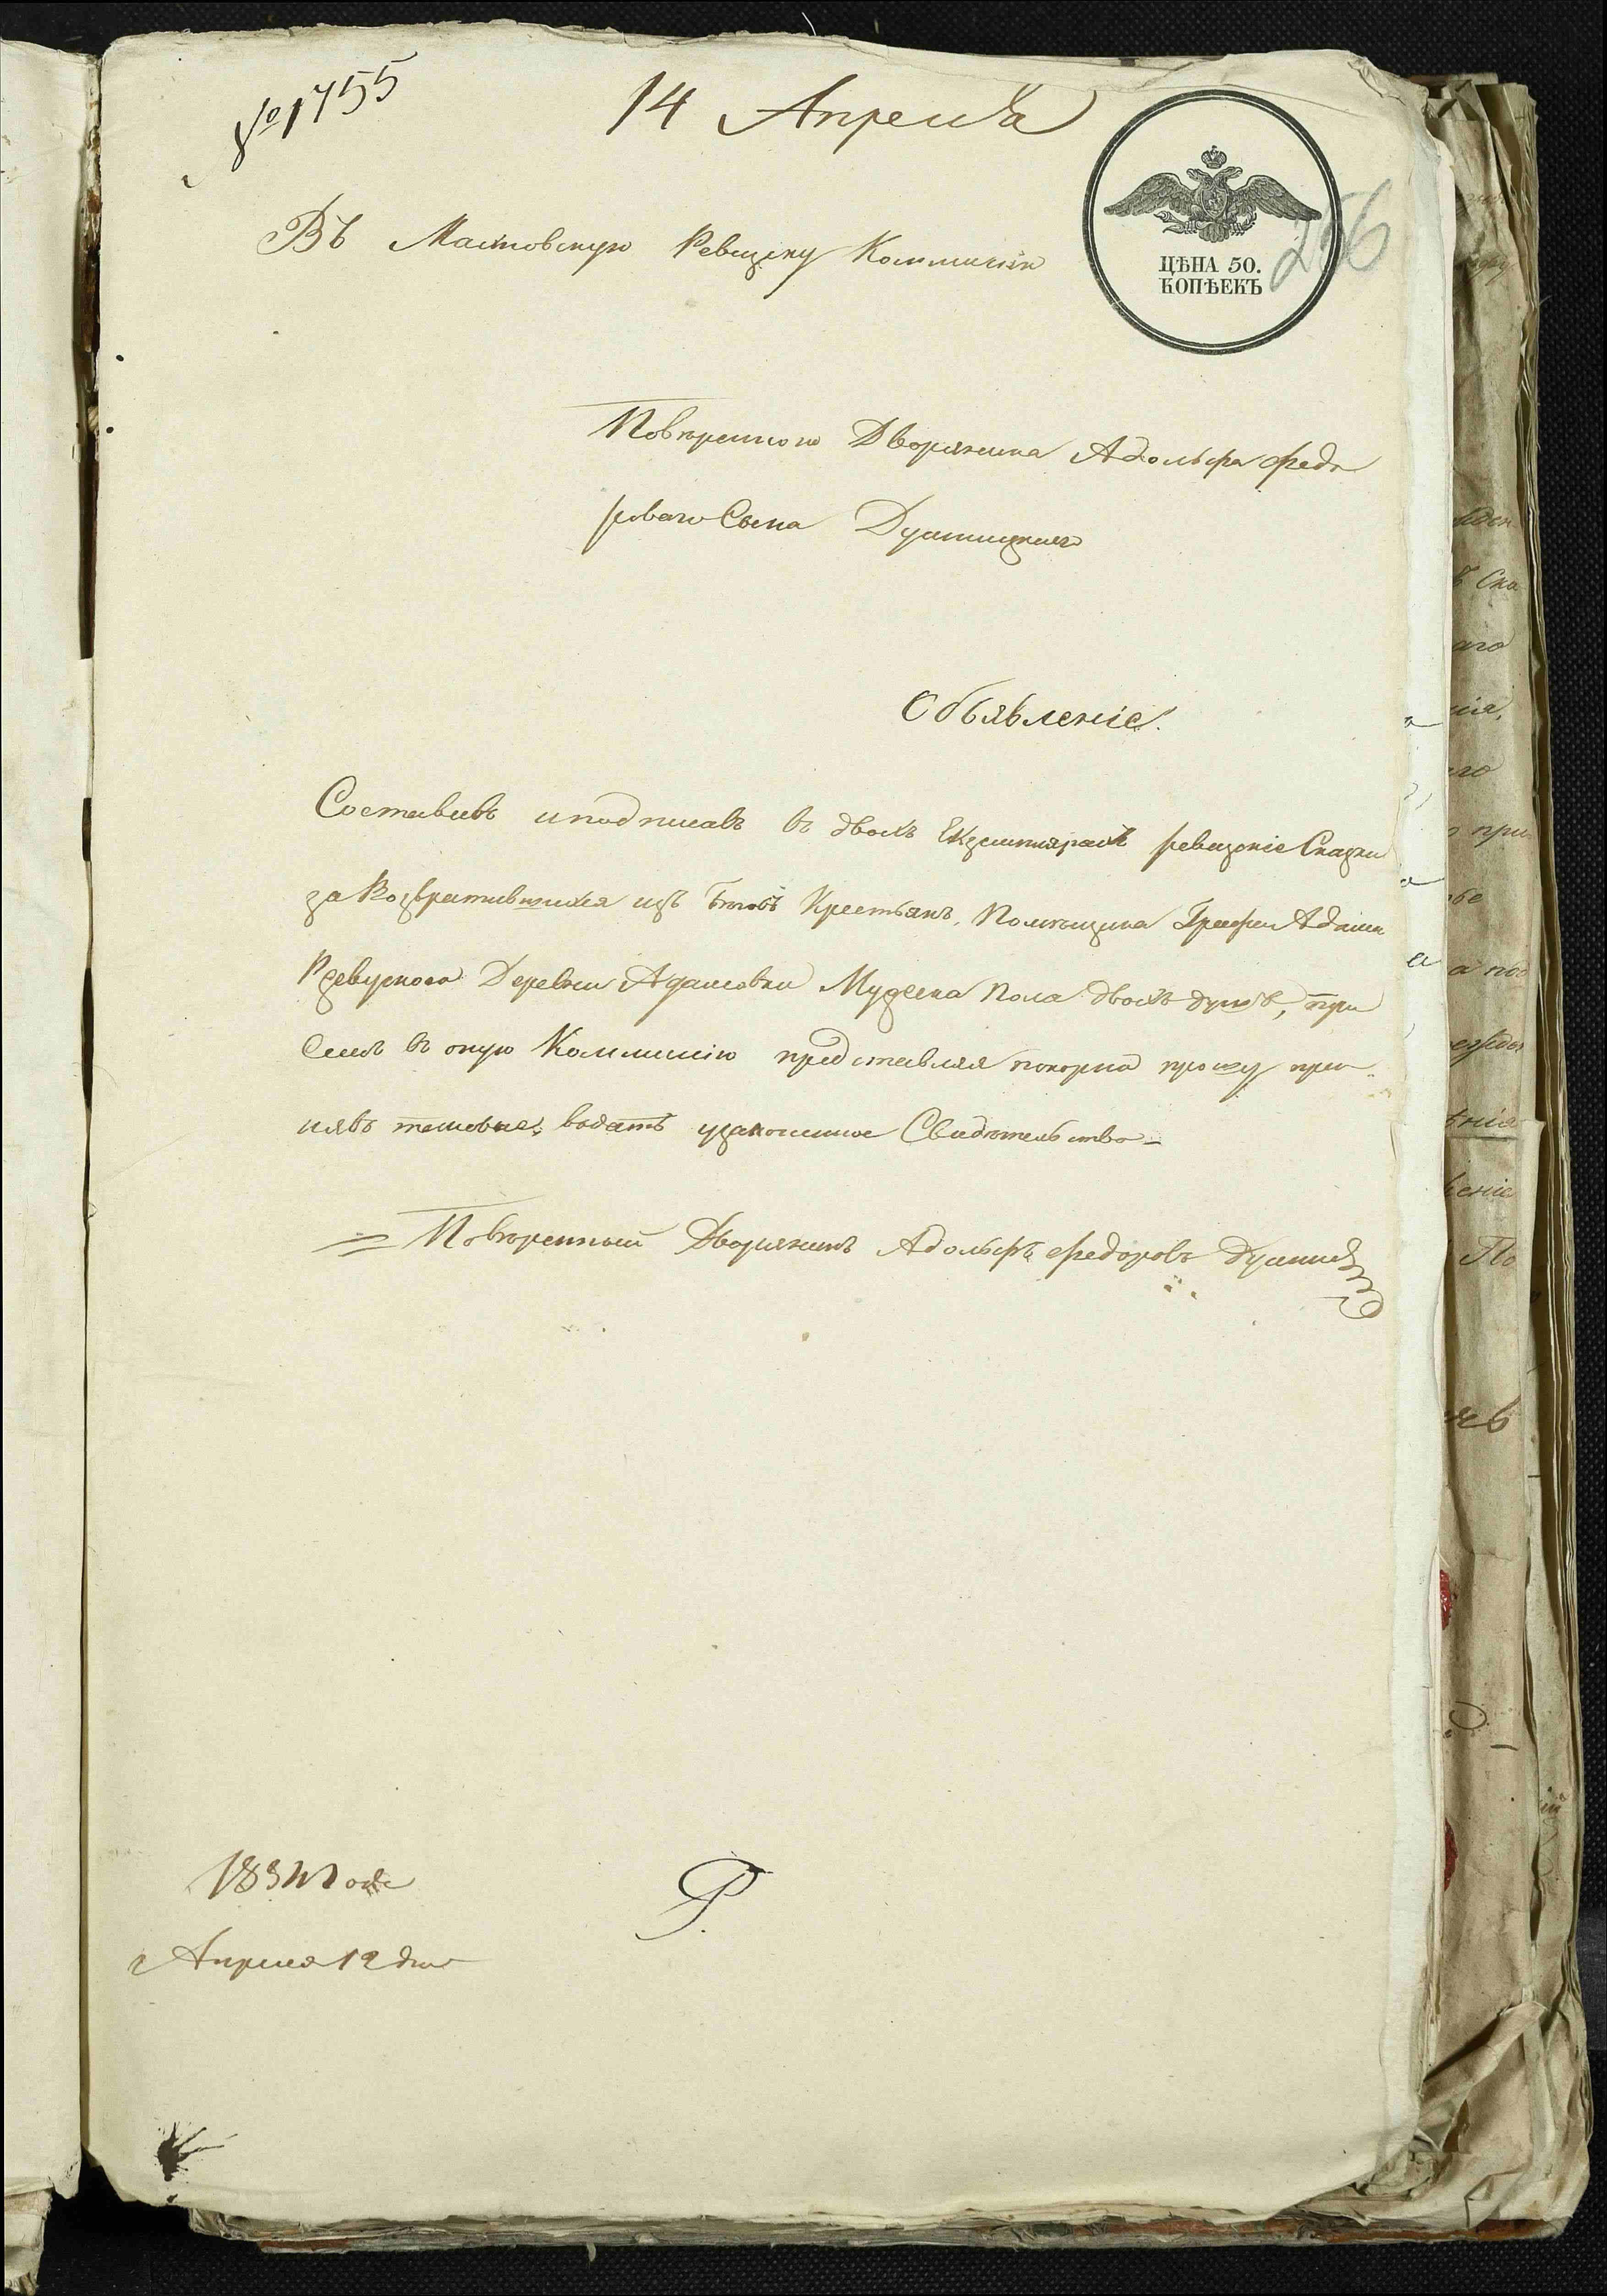 № 1755
14 Апреля
256
ЦѢНА 50.
КОПѢЕКЪ
Въ Махновскую Ревизску Коммисію
Повѣреннаго Дворянина Адольфа Федо
роваго Сына
Объявленіе.
Составивъ и подписавъ въ двохъ Екземплярахъ ревизскіе Сказки
за Возвратившихся изъ Бѣговъ Крестьянъ, Помѣщика Графа Адама
Ржевускаго Деревни Адамовки Мужеска Пола двохъ душъ, при
семъ въ оную Коммисію представляя покорно прошу при-
нявъ таковые, водатъ узаконенное Свидѣтельство —
Повѣренный Дворянинъ Адольфъ Федоровъ
1834 Года
Апреля 12 дня
Р.